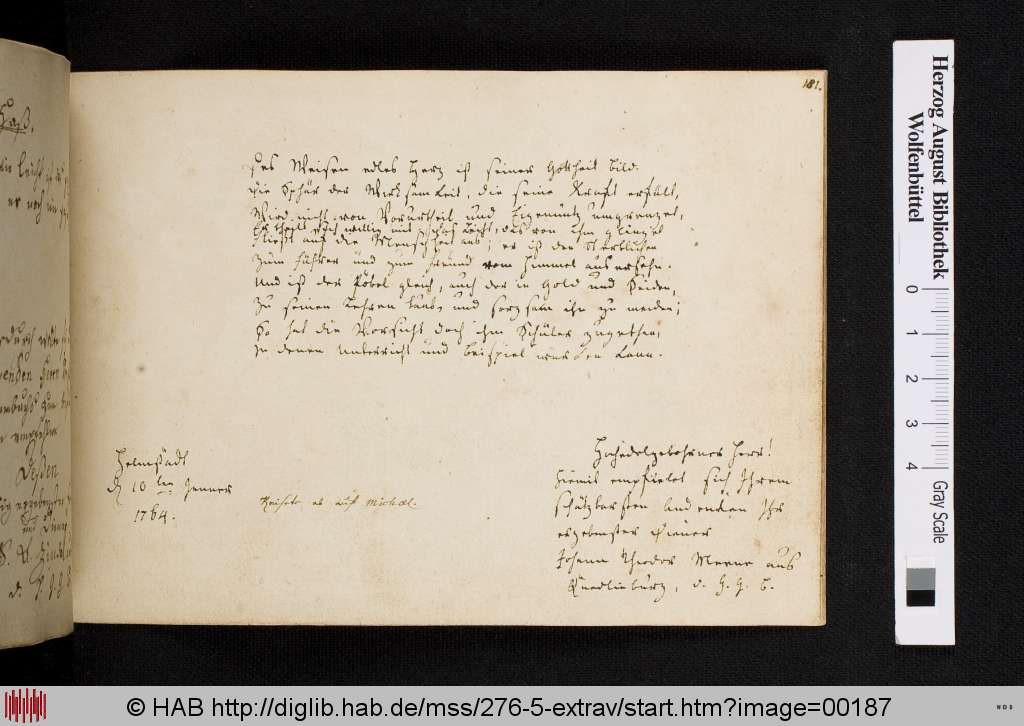 181.
Des Weisen edles Herz ist seiner Gottheit Bild.
Die Sphär der Wirksamkeit, die seine Kraft erfüllt,
Wird nicht von Vorurtheil und Eigennutz umgrenzet,
Er theilt sich willig mit das von ihm
fließt auf die Menschheit aus; er ist den Sterblichen
Zum Führer und zum Freund vom Himmel ausersehn.
Und ist der Pöbel gleich, auch der in Gold und Seiden,
Zu seinen Lehren taub, und sorgsam ihn zu meiden;
So hat die Vorsicht doch ihm Schüler zugesehn,
In denen Unterricht und Beispiel wurzeln kann.
Helmstädt
d 10ten Jenner
1764.
Reisete ab auf Michael.
Hochedelgebohrner Herr!
Hiemit empfielet sich Ihrem
schätzbarsten Andenken Ihr
ergebenster Diener
Johann Theodor Meene aus
Quedlinburg, d. G. G. B.
Herzog August Bibliothek
Wolfenbüttel
0 1 2 3 4
Gray Scale
© HAB http://diglib.hab.de/mss/276-5-extrav/start.htm?image=00187
WDB